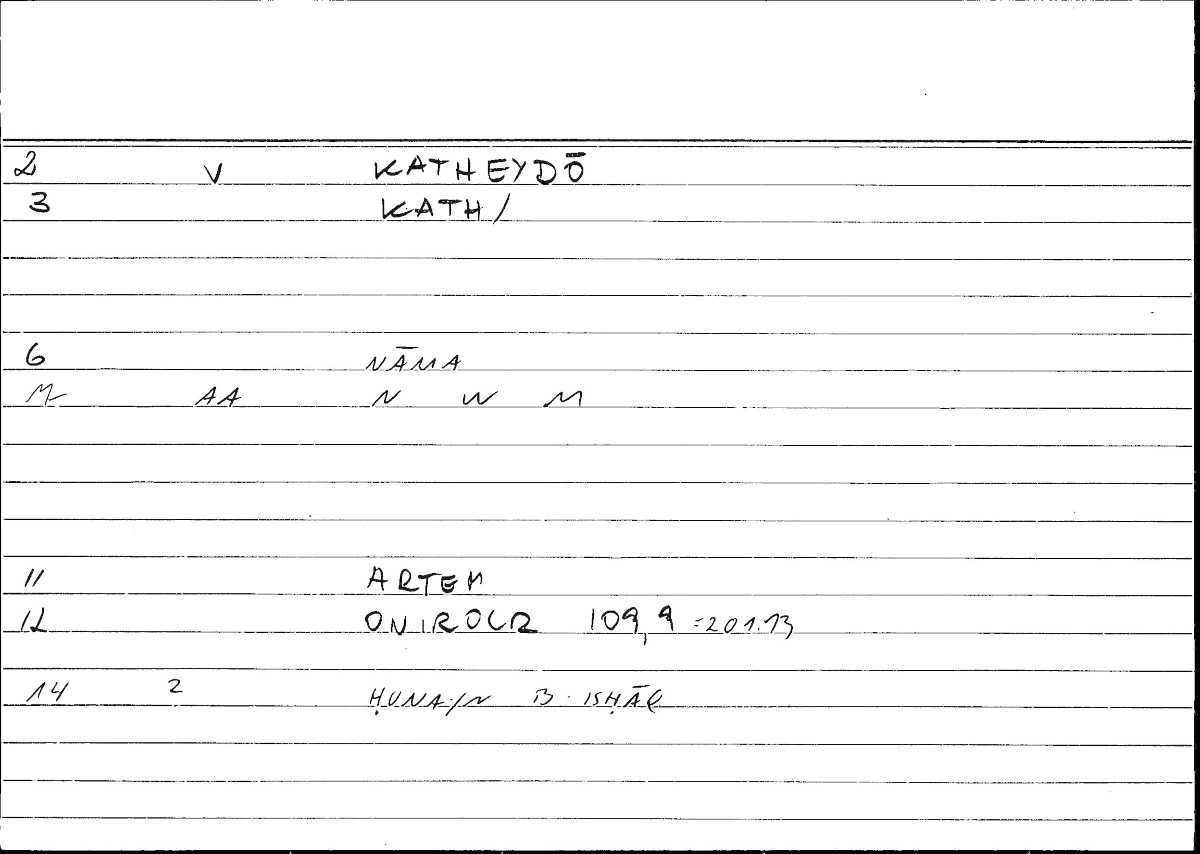 2 V KATHEYDŌ
3 KATH/
6 NĀMA
AA N W M
11 ARTEM
12 ONIROCR 109,9 =201.13
14 2 ḤUNAIN B. ISḤĀQ